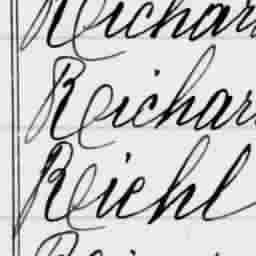 Richar
Richar
Riehl